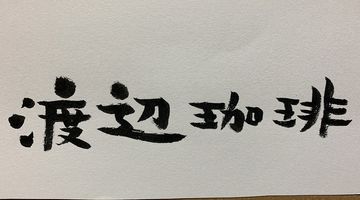 渡辺珈琲